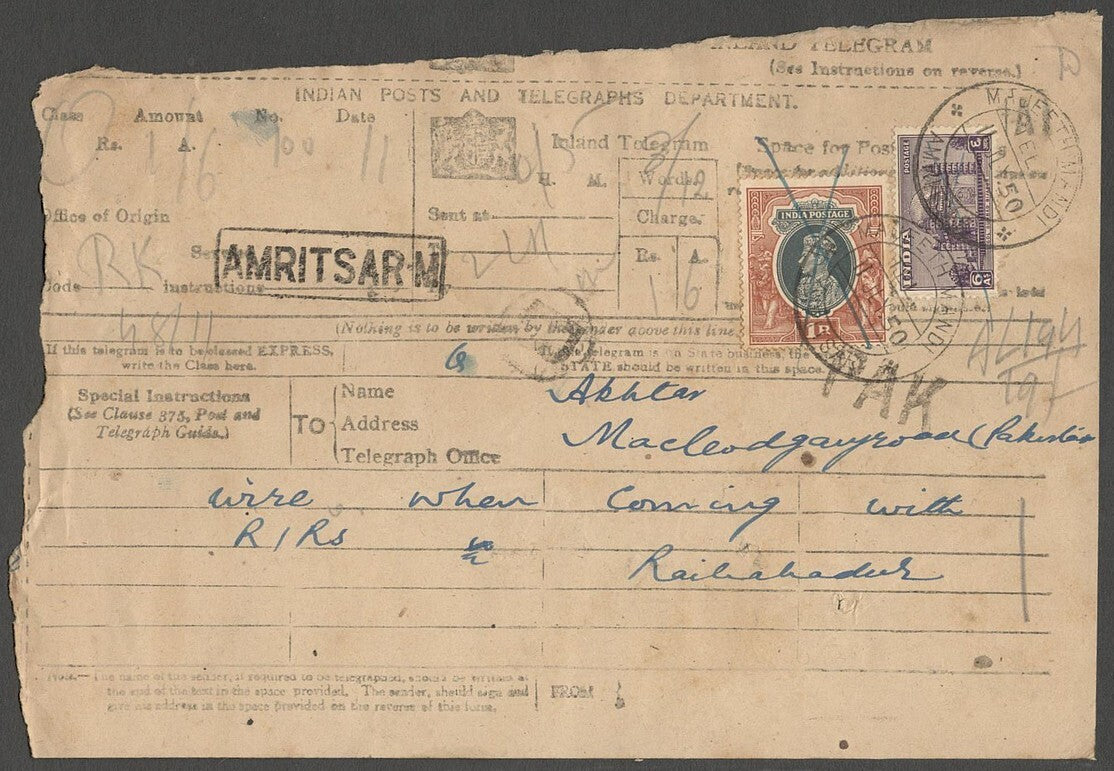 INLAND TELEGRAM
(See Instructions on reverse.)
INDIAN POSTS AND TELEGRAPHS DEPARTMENT.
Class Amount No. Date
Rs. A.
1/6 11
Inland Telegram
H. M.
Words.
12
Sent at
Charge.
Rs. A.
1 6
Space for
Office of Origin
RK
AMRITSAR-M
Code instructions
48/11
(Nothing is to be written by the sender above this line
If this telegram is to be classed EXPRESS,
write the Class here.
6
telegram is on State business, the
STATE should be written in this space.
INDIA POSTAGE
1 R
POSTAGE
INDIA
6 As
MAJEETH MANDI
AMRITSAR
TEL
50
MAJEETH MANDI
PAK
Special Instructions
(See Clause 375, Post and
Telegraph Guide.)
TO
Name
Address
Telegraph Office
Akhtar
Macleodganjroad (Pakistan
wire when coming with
R/Rs
Raibahadur
Note.—The name of the sender, if required to be telegraphed, should be written at
the end of the text in the space provided. The sender, should sign and
give his address in the space provided on the reverse of this form.
FROM